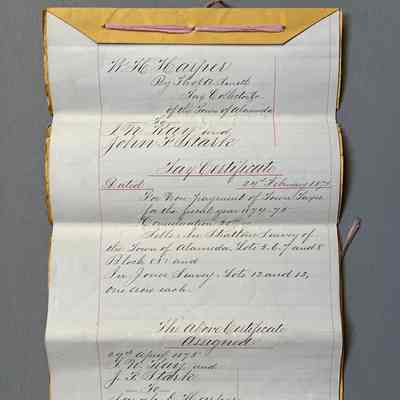 W. H. Harper
By Thos A. Smith
Tax Collector
of the Town of Alameda
To
I. W. Kay and
John F. Stark
Tax Certificate
Dated 24th February 1875
For Non-payment of Town Taxes
for the fiscal year 1874-75
Consideration
Sells In Stratton Survey of
the Town of Alameda. Lots 5. 6. 7 and 8
Block and
In Jones Survey Lots 12 and 13,
one acre each.
The Above Certificate
Assigned
29th April 1875
I. W. Kay and
J. F. Stark
— To —